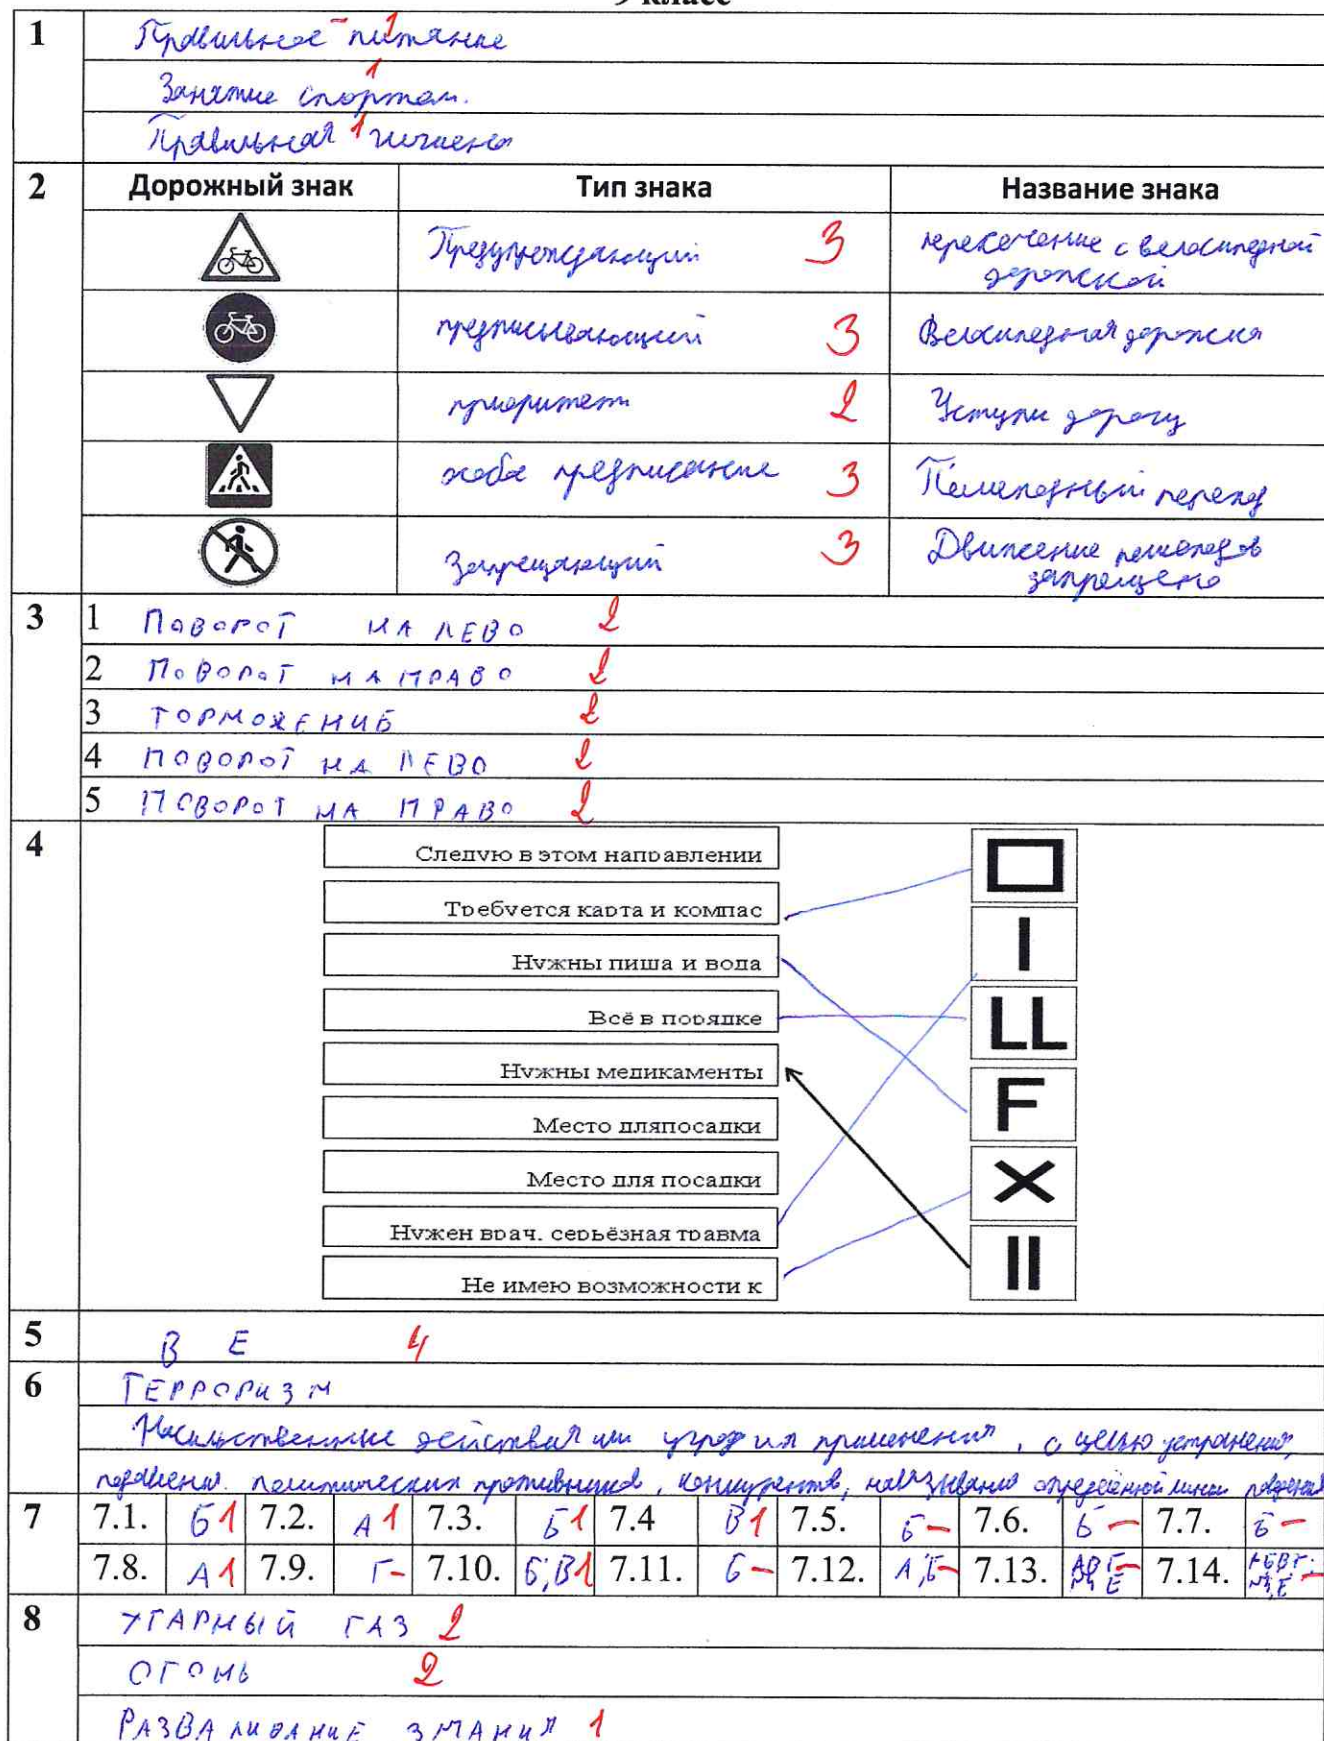 9 класс
1 Правильное питание – 1
Занятие спортом. 1
Правильная гигиена 1
2 Дорожный знак Тип знака Название знака
Предупреждающий 3 пересечение с велосипедной дорожкой
предписывающий 3 Велосипедная дорожка
приоритет 2 Уступи дорогу
особое предписание 3 Пешеходный переход
Запрещающий 3 Движение пешеходов запрещено
3 1 ПОВОРОТ НА ЛЕВО 2
2 ПОВОРОТ НА ПРАВО 2
3 ТОРМОЖЕНИЕ 2
4 ПОВОРОТ НА ЛЕВО 2
5 ПОВОРОТ НА ПРАВО 2
4 Следую в этом направлении
Требуется карта и компас
Нужны пища и вода
Всё в порядке LL
Нужны медикаменты F
Место дляпосадки
Место для посадки X
Нужен врач. серьёзная травма
Не имею возможности к II
5 В Е 4
6 ТЕРРОРИЗМ
Насильственные действия или угроза их применения, с целью устранения,
подавления политических противников, конкурентов, навязывания определённой линии поведения
7 7.1. Б 1 7.2. А 1 7.3. Б 1 7.4 В 1 7.5. Б – 7.6. Б – 7.7. Б –
7.8. А 1 7.9. Г – 7.10. Б,В 1 7.11. Б – 7.12. А,Б – 7.13. 7.14.
8 УГАРНЫЙ ГАЗ 2
ОГОНЬ 2
РАЗВАЛИВАНИЕ ЗДАНИЯ 1